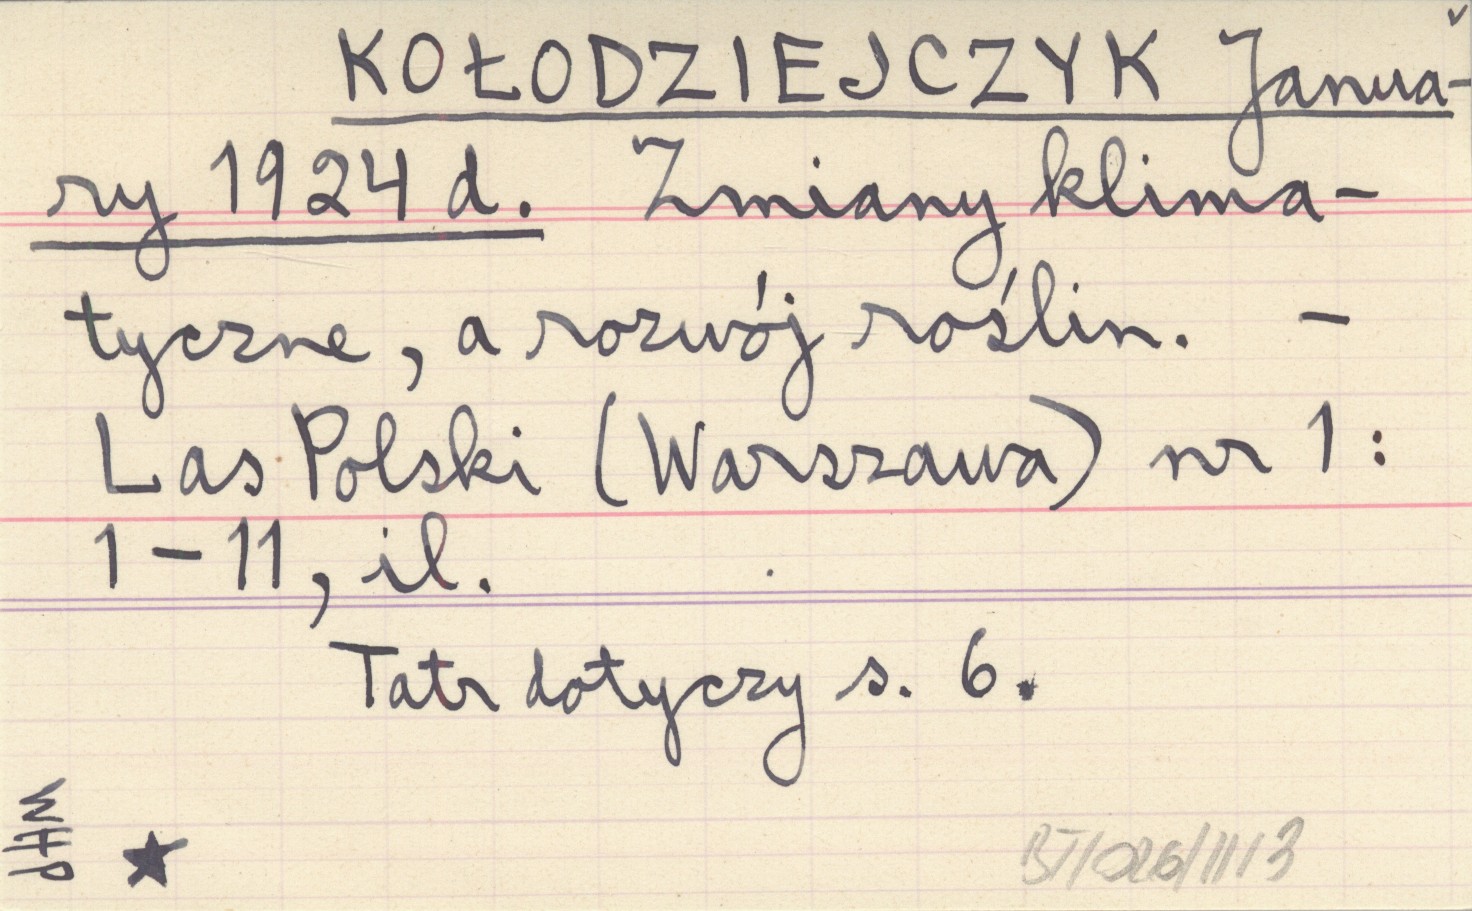 KOŁODZIEJCZYK Janua-
ry 1924 d. Zmiany klima-
tyczne, a rozwój roślin. -
Las Polski (Warszawa) nr 1:
1-11, il.
Tatr dotyczy s. 6.
WHP
BT/026/11/3